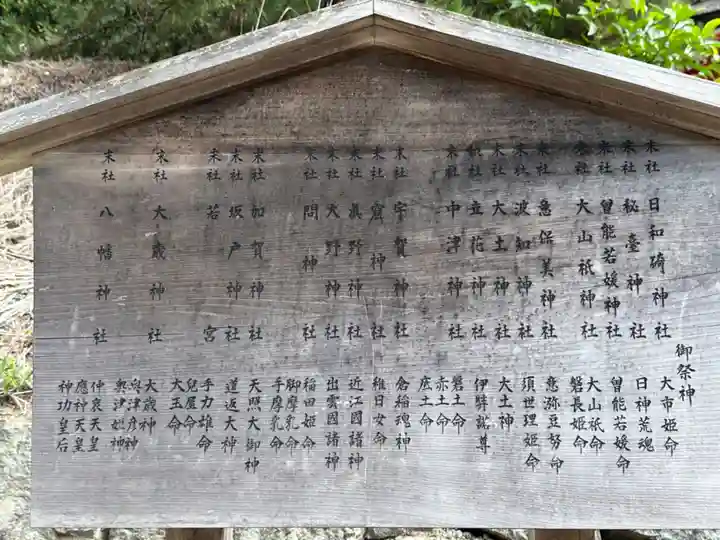 末社 日和碕神社
御祭神
大市姫命
末社 秘臺神社
日神荒魂
末社 曽能若媛神社
曽能若媛命
末社 大山祇神社
大山祇命
磐長姫命
末社 惠保美神社
意弥豆努命
末社 波知神社
須世理姫命
末社 大土神社
大土神
末社 立花神社
伊弉諾尊
末社 中津神社
磐土命
赤土命
底土命
末社 宇賀神社
倉稲魂神
末社 窟神社
稚日女命
末社 眞野神社
近江國諸神
末社 大野神社
出雲國諸神
末社 問神社
稲田姫命
脚摩乳命
手摩乳命
末社 加賀神社
天照大御神
末社 坂戸神社
道返大神
末社 若宮
手力雄命
兒屋命
大玉命
末社 大歳神社
大歳神
奥津彦神
奥津姫神
末社 八幡神社
仲哀天皇
應神天皇
神功皇后